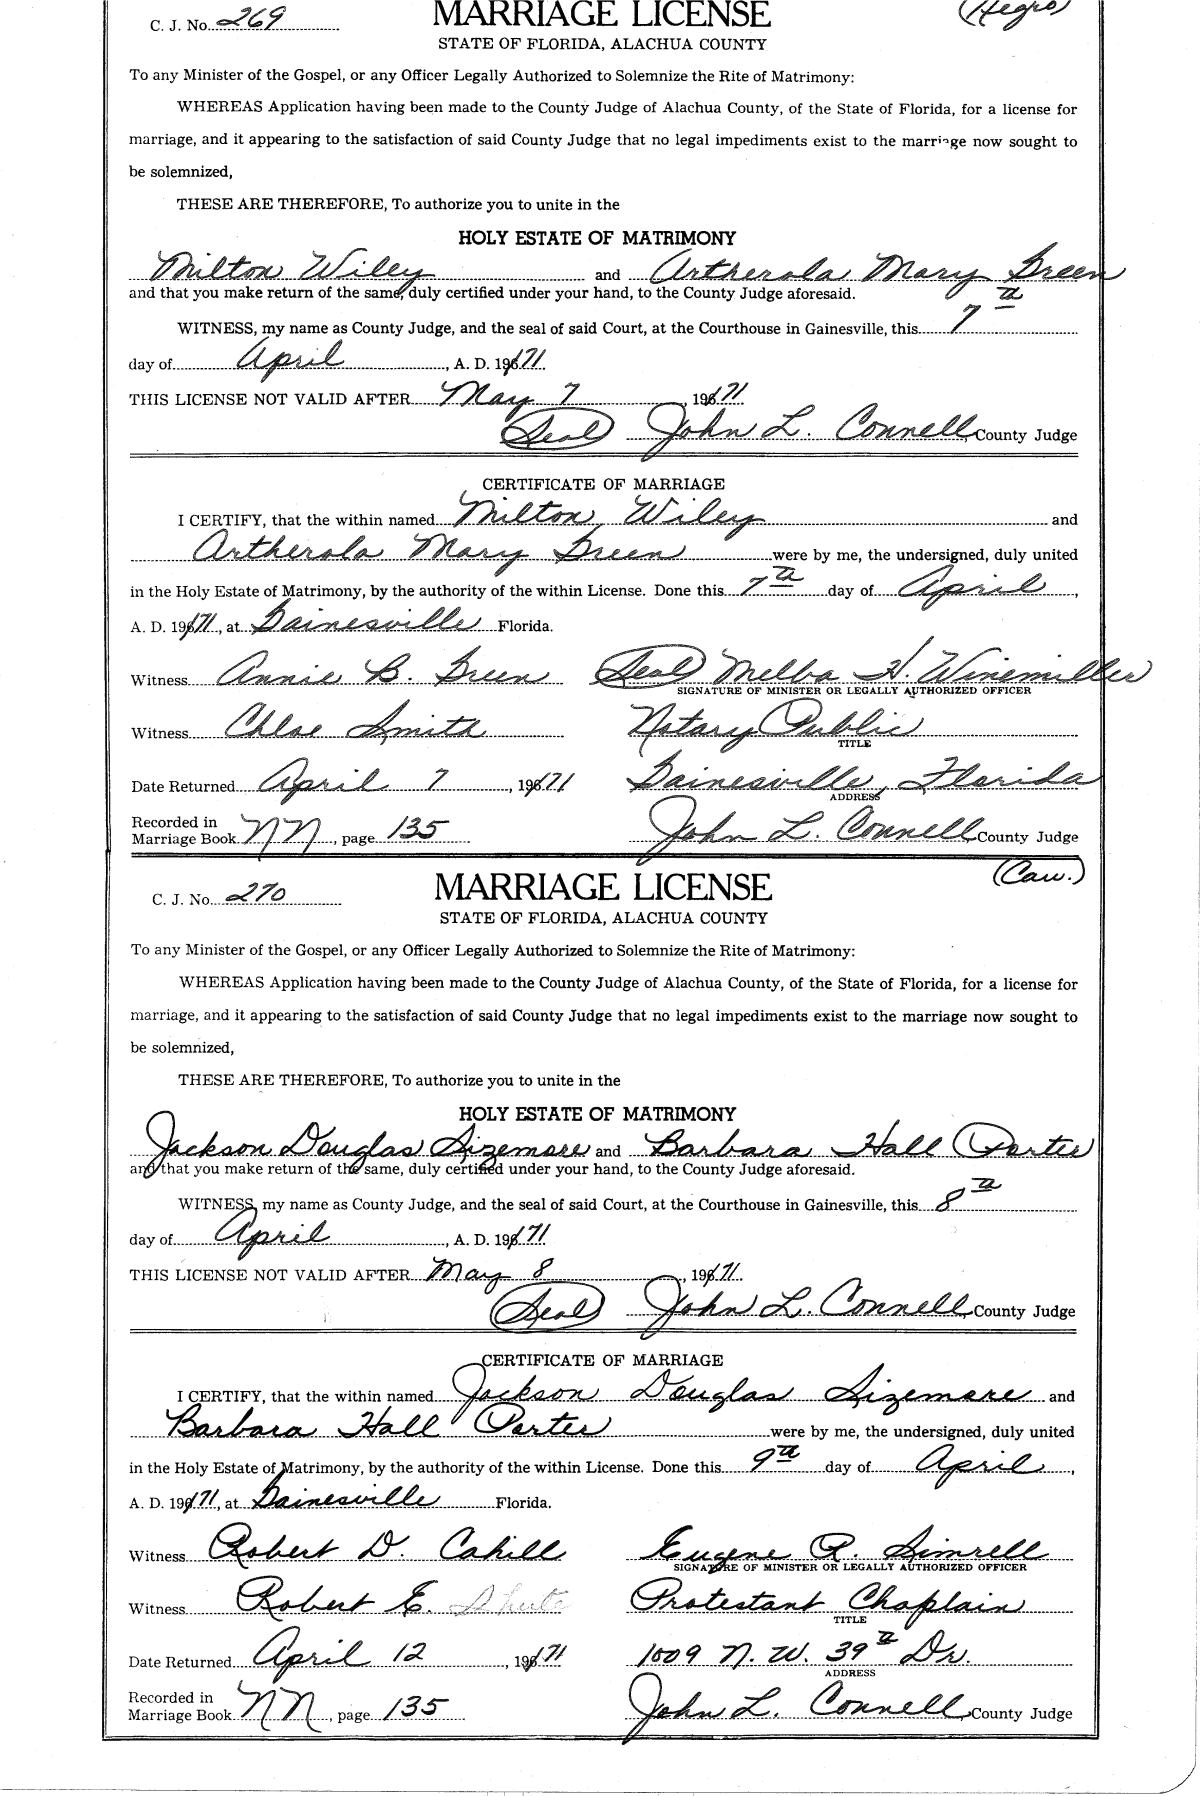 C. J. No. 269 MARRIAGE LICENSE (Negro)
STATE OF FLORIDA, ALACHUA COUNTY
To any Minister of the Gospel, or any Officer Legally Authorized to Solemnize the Rite of Matrimony:
WHEREAS Application having been made to the County Judge of Alachua County, of the State of Florida, for a license for
marriage, and it appearing to the satisfaction of said County Judge that no legal impediments exist to the marriage now sought to
be solemnized,
THESE ARE THEREFORE, To authorize you to unite in the
HOLY ESTATE OF MATRIMONY
Milton Wiley and Artherola Mary Green
and that you make return of the same, duly certified under your hand, to the County Judge aforesaid.
WITNESS, my name as County Judge, and the seal of said Court, at the Courthouse in Gainesville, this 7th
day of April, A. D. 1971.
THIS LICENSE NOT VALID AFTER May 7, 1971.
(Seal) John L. Connell County Judge
CERTIFICATE OF MARRIAGE
I CERTIFY, that the within named Milton Wiley and
Artherola Mary Green were by me, the undersigned, duly united
in the Holy Estate of Matrimony, by the authority of the within License. Done this 7th day of April,
A. D. 1971, at Gainesville Florida.
Witness Annie B. Green (Seal) Melba H. Winemiller
SIGNATURE OF MINISTER OR LEGALLY AUTHORIZED OFFICER
Witness Chloe Smith Notary Public
TITLE
Date Returned April 7, 1971 Gainesville, Florida
ADDRESS
Recorded in
Marriage Book NN, page 135 John L. Connell County Judge
(Cau.)
C. J. No. 270 MARRIAGE LICENSE
STATE OF FLORIDA, ALACHUA COUNTY
To any Minister of the Gospel, or any Officer Legally Authorized to Solemnize the Rite of Matrimony:
WHEREAS Application having been made to the County Judge of Alachua County, of the State of Florida, for a license for
marriage, and it appearing to the satisfaction of said County Judge that no legal impediments exist to the marriage now sought to
be solemnized,
THESE ARE THEREFORE, To authorize you to unite in the
HOLY ESTATE OF MATRIMONY
Jackson Douglas Sizemore and Barbara Hall Porter
and that you make return of the same, duly certified under your hand, to the County Judge aforesaid.
WITNESS, my name as County Judge, and the seal of said Court, at the Courthouse in Gainesville, this 8th
day of April, A. D. 1971.
THIS LICENSE NOT VALID AFTER May 8, 1971.
(Seal) John L. Connell County Judge
CERTIFICATE OF MARRIAGE
I CERTIFY, that the within named Jackson Douglas Sizemore and
Barbara Hall Porter were by me, the undersigned, duly united
in the Holy Estate of Matrimony, by the authority of the within License. Done this 9th day of April,
A. D. 1971, at Gainesville Florida.
Witness Robert D. Cahill Eugene R. Simrell
SIGNATURE OF MINISTER OR LEGALLY AUTHORIZED OFFICER
Witness Robert E. Protestant Chaplain
TITLE
Date Returned April 12, 1971 1809 N. W. 39th Dr.
ADDRESS
Recorded in
Marriage Book NN, page 135 John L. Connell County Judge